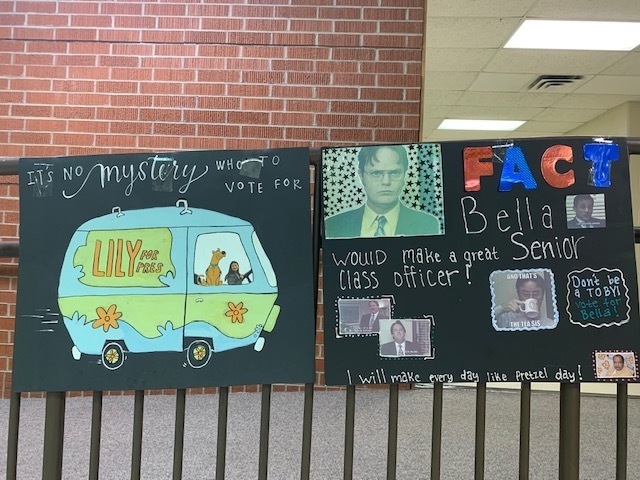 IT'S NO mystery WHO TO
VOTE FOR
LILY FOR
PRES
FACT
Bella
WOULD make a great Senior
Class officer!
AND THAT'S
THE TEA SIS
Dont be
a TOBY!
vote for
Bella!
I will make every day like Pretzel day!